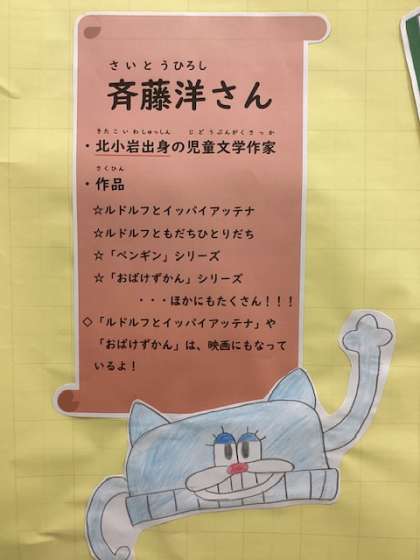 さいとうひろし
斉藤洋さん
きたこいわしゅっしん じどうぶんがくさっか
・北小岩出身の児童文学作家
さくひん
・作品
☆ルドルフとイッパイアッテナ
☆ルドルフともだちひとりだち
☆「ペンギン」シリーズ
☆「おばけずかん」シリーズ
・・・ほかにもたくさん！！！
◇「ルドルフとイッパイアッテナ」や
「おばけずかん」は、映画にもなって
いるよ！